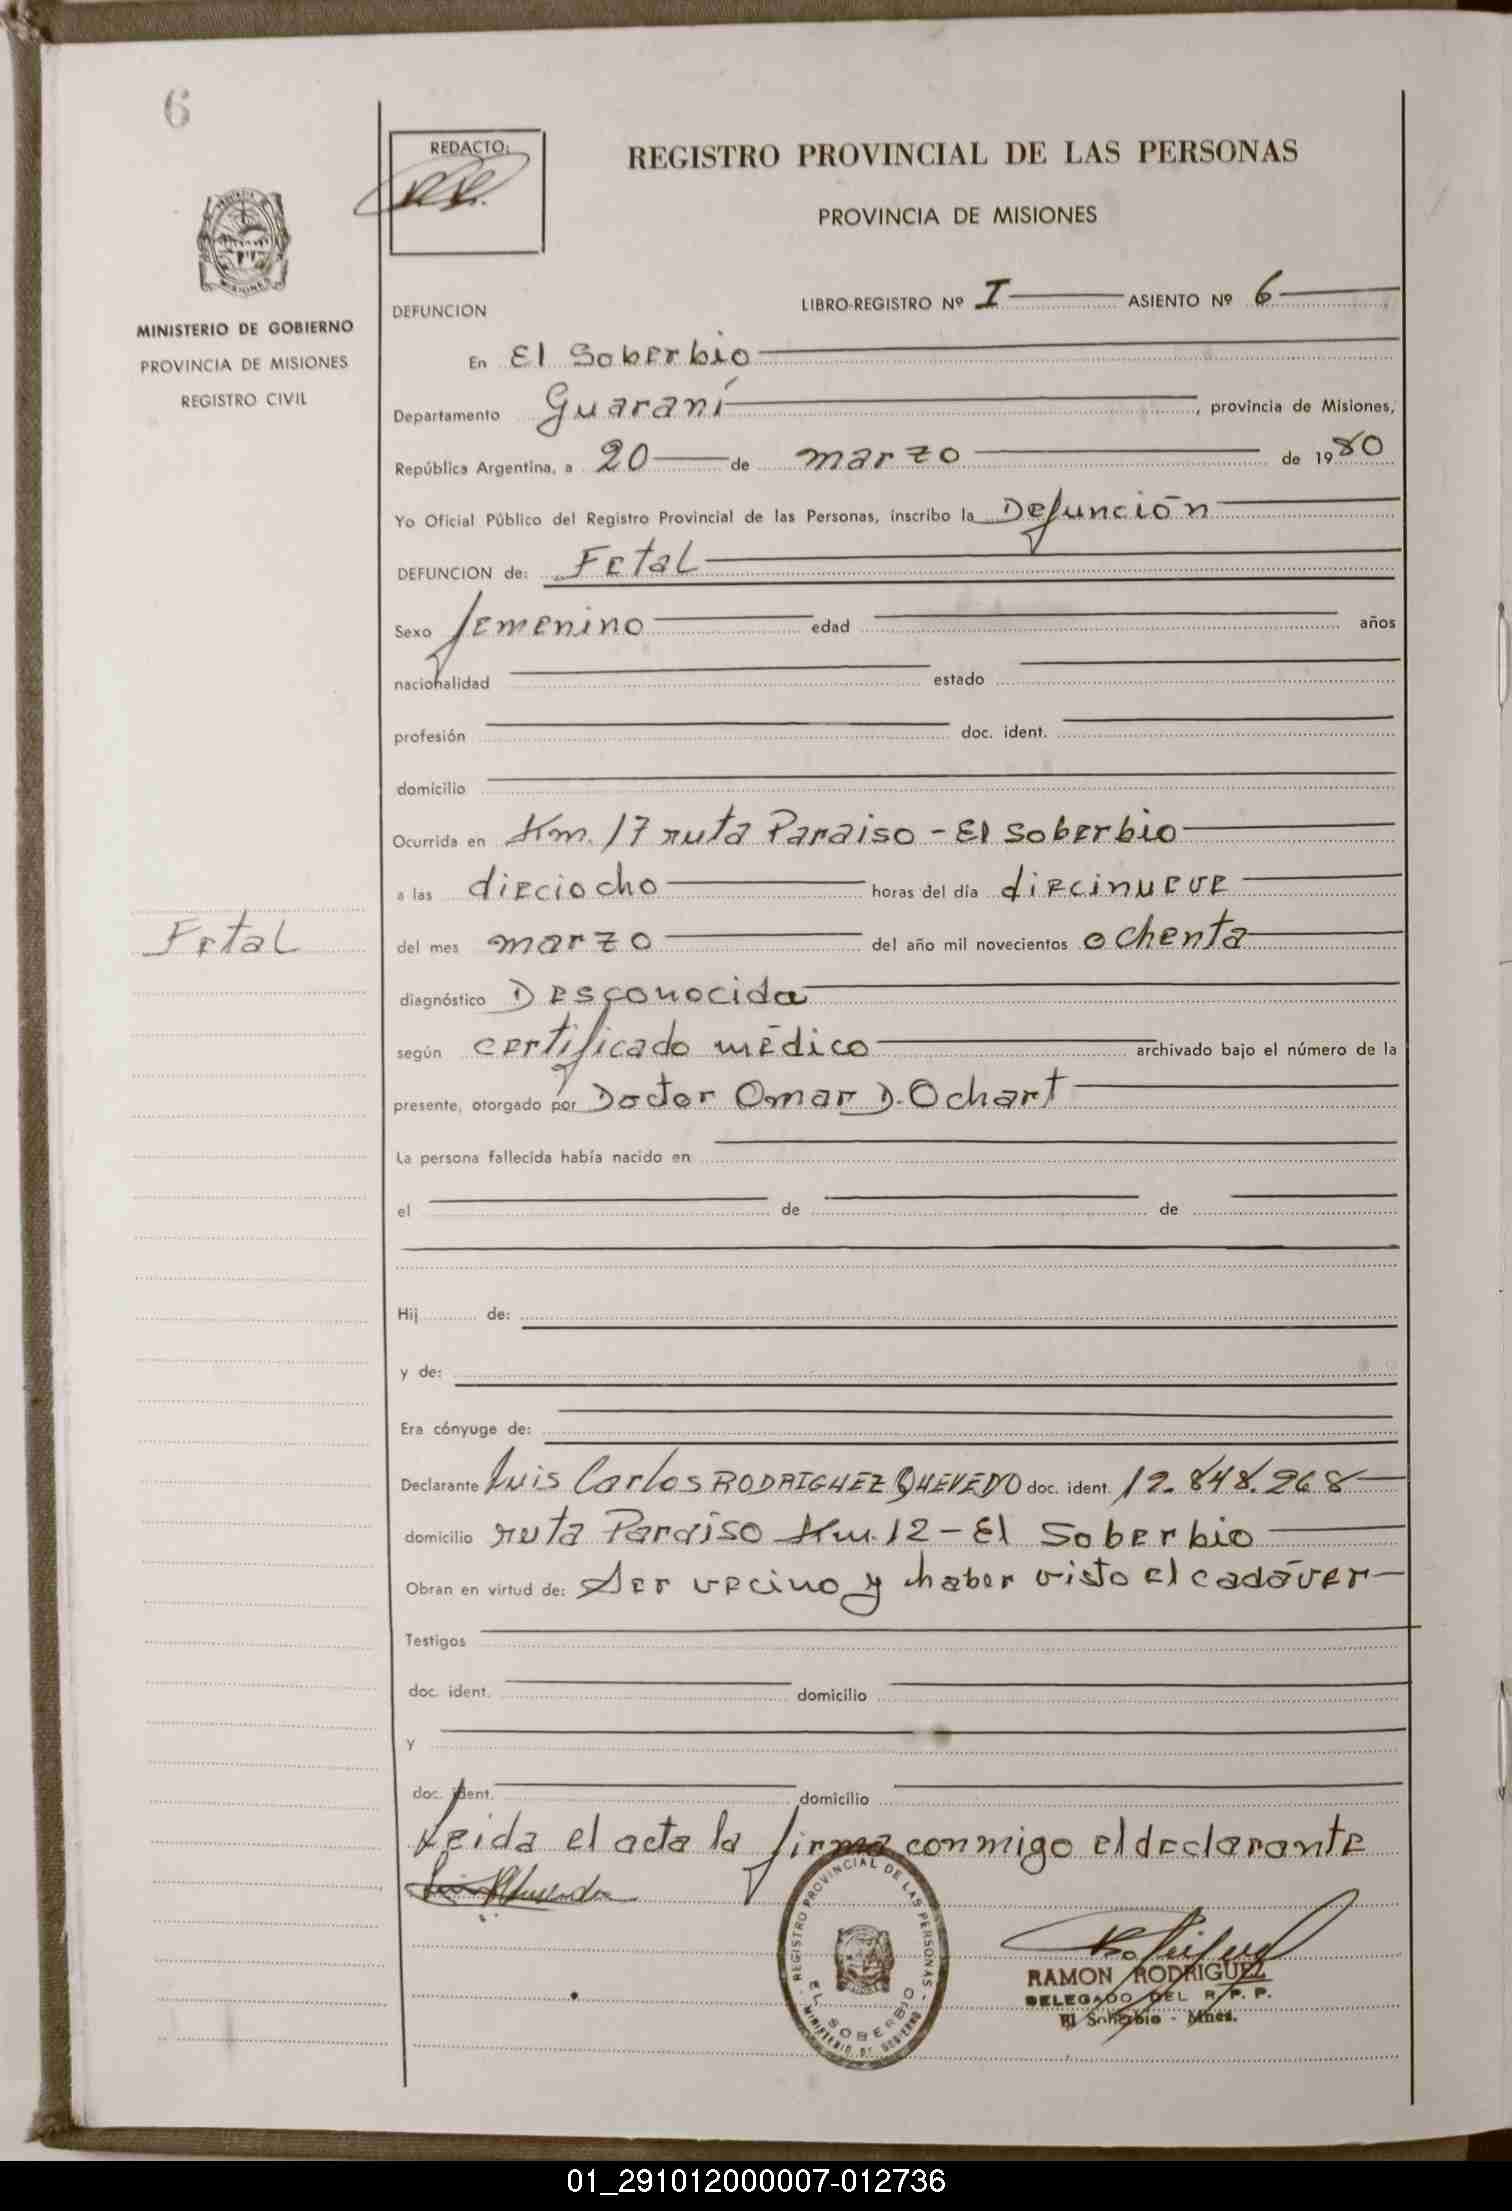 6
REDACTO:
REGISTRO PROVINCIAL DE LAS PERSONAS
PROVINCIA DE MISIONES
MINISTERIO DE GOBIERNO
PROVINCIA DE MISIONES
REGISTRO CIVIL
DEFUNCION LIBRO-REGISTRO Nº I ASIENTO Nº 6
En El Soberbio
Departamento Guaraní, provincia de Misiones,
República Argentina, a 20 de marzo de 1980
Yo Oficial Público del Registro Provincial de las Personas, inscribo la Defunción
DEFUNCION de: Fetal
Sexo femenino edad años
nacionalidad estado
profesión doc. ident.
domicilio
Ocurrida en Km. 17 ruta Paraiso - El Soberbio
a las dieciocho horas del día diecinueve
Fetal
del mes marzo del año mil novecientos ochenta
diagnóstico Desconocida
según certificado médico archivado bajo el número de la
presente, otorgado por Doctor Omar D. Ochart
La persona fallecida había nacido en
el de de
Hij de:
y de:
Era cónyuge de:
Declarante Luis Carlos RODRIGUEZ QUEVEDO doc. ident. 12.848.268
domicilio ruta Paraíso Km. 12 - El Soberbio
Obran en virtud de: Ser vecino y haber visto el cadáver
Testigos
doc. ident. domicilio
y
doc. ident. domicilio
Leida el acta la firma conmigo el declarante
REGISTRO PROVINCIAL DE LAS PERSONAS
EL SOBERBIO
MINISTERIO DE GOBIERNO
RAMON RODRIGUEZ
DELEGADO DEL R. P. P.
El Soberbio - Mnes.
01_291012000007-012736